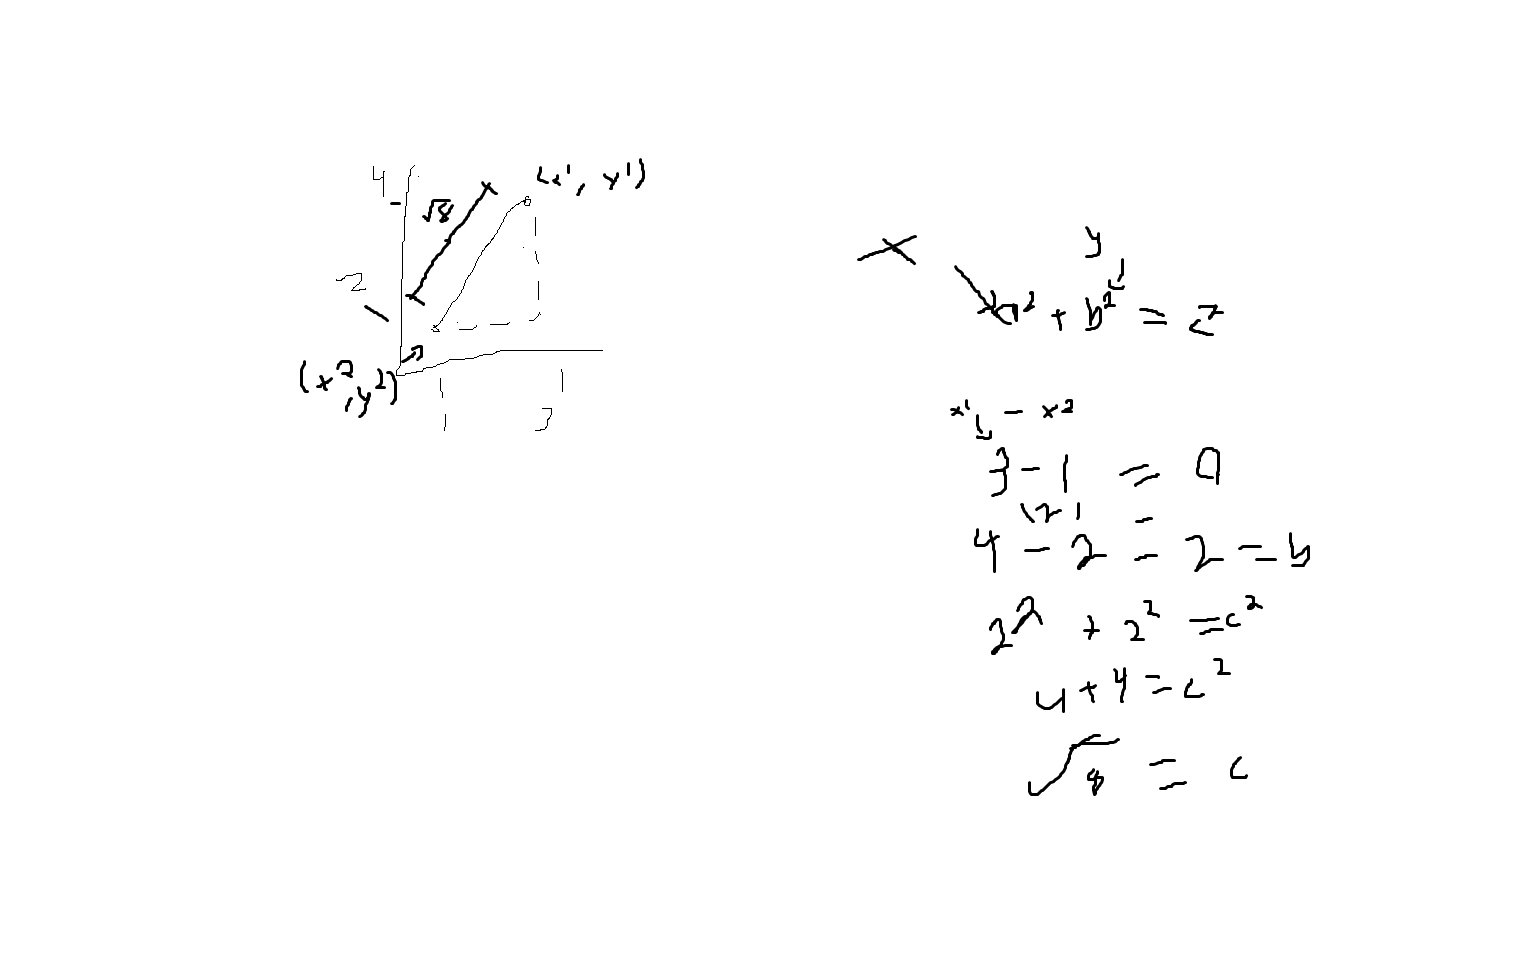 4
(x¹, y¹)
√8
2
(x², y²)
1 3
x y
a² + b² = c²
x¹ - x²
3 - 1 = a
(2) =
4 - 2 = 2 = b
2² + 2² = c²
4 + 4 = c²
√8 = c